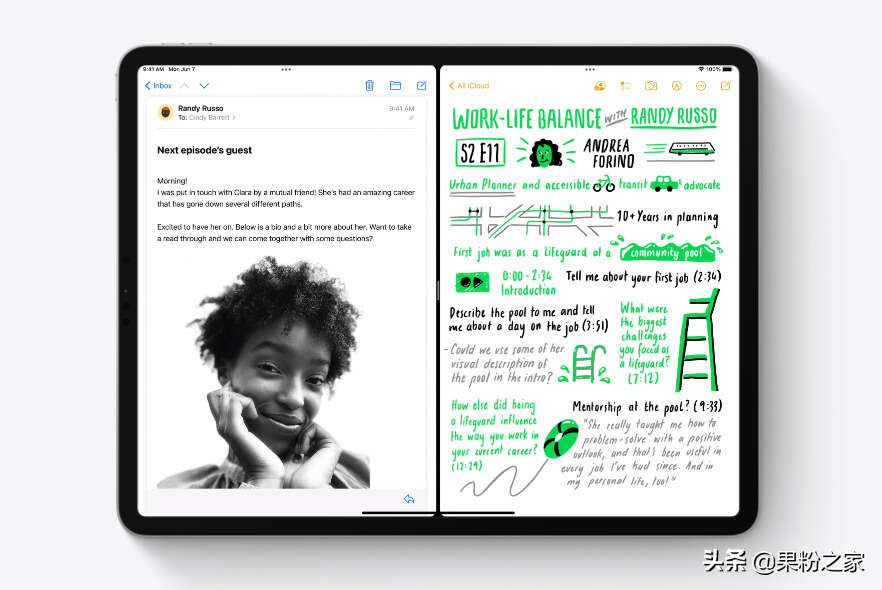 9:41 AM Mon Jun 7
100%
Inbox
Randy Russo
9:41 AM
To: Cindy Barrett >
Next episode's guest
Morning!
I was put in touch with Clara by a mutual friend! She's had an amazing career
that has gone down several different paths.
Excited to have her on. Below is a bio and a bit more about her. Want to take
a read through and we can come together with some questions?
All iCloud
WORK-LIFE BALANCE WITH RANDY RUSSO
S2 E11
ANDREA
FORINO
Urban Planner and accessible transit advocate
10+ Years in planning
First job was as a lifeguard at a community pool
0:00 - 2:34
Introduction
Tell me about your first job (2:34)
Describe the pool to me and tell
me about a day on the job (3:51)
- Could we use some of her
visual description of
the pool in the intro?
What were
the biggest
challenges
you faced as
a lifeguard?
(7:12)
How else did being
a lifeguard influence
the way you work in
your current career?
(12:29)
Mentorship at the pool? (9:33)
"She really taught me how to
problem-solve with a positive
outlook, and that's been useful in
every job I've had since. And in
my personal life, too!"
头条 @果粉之家